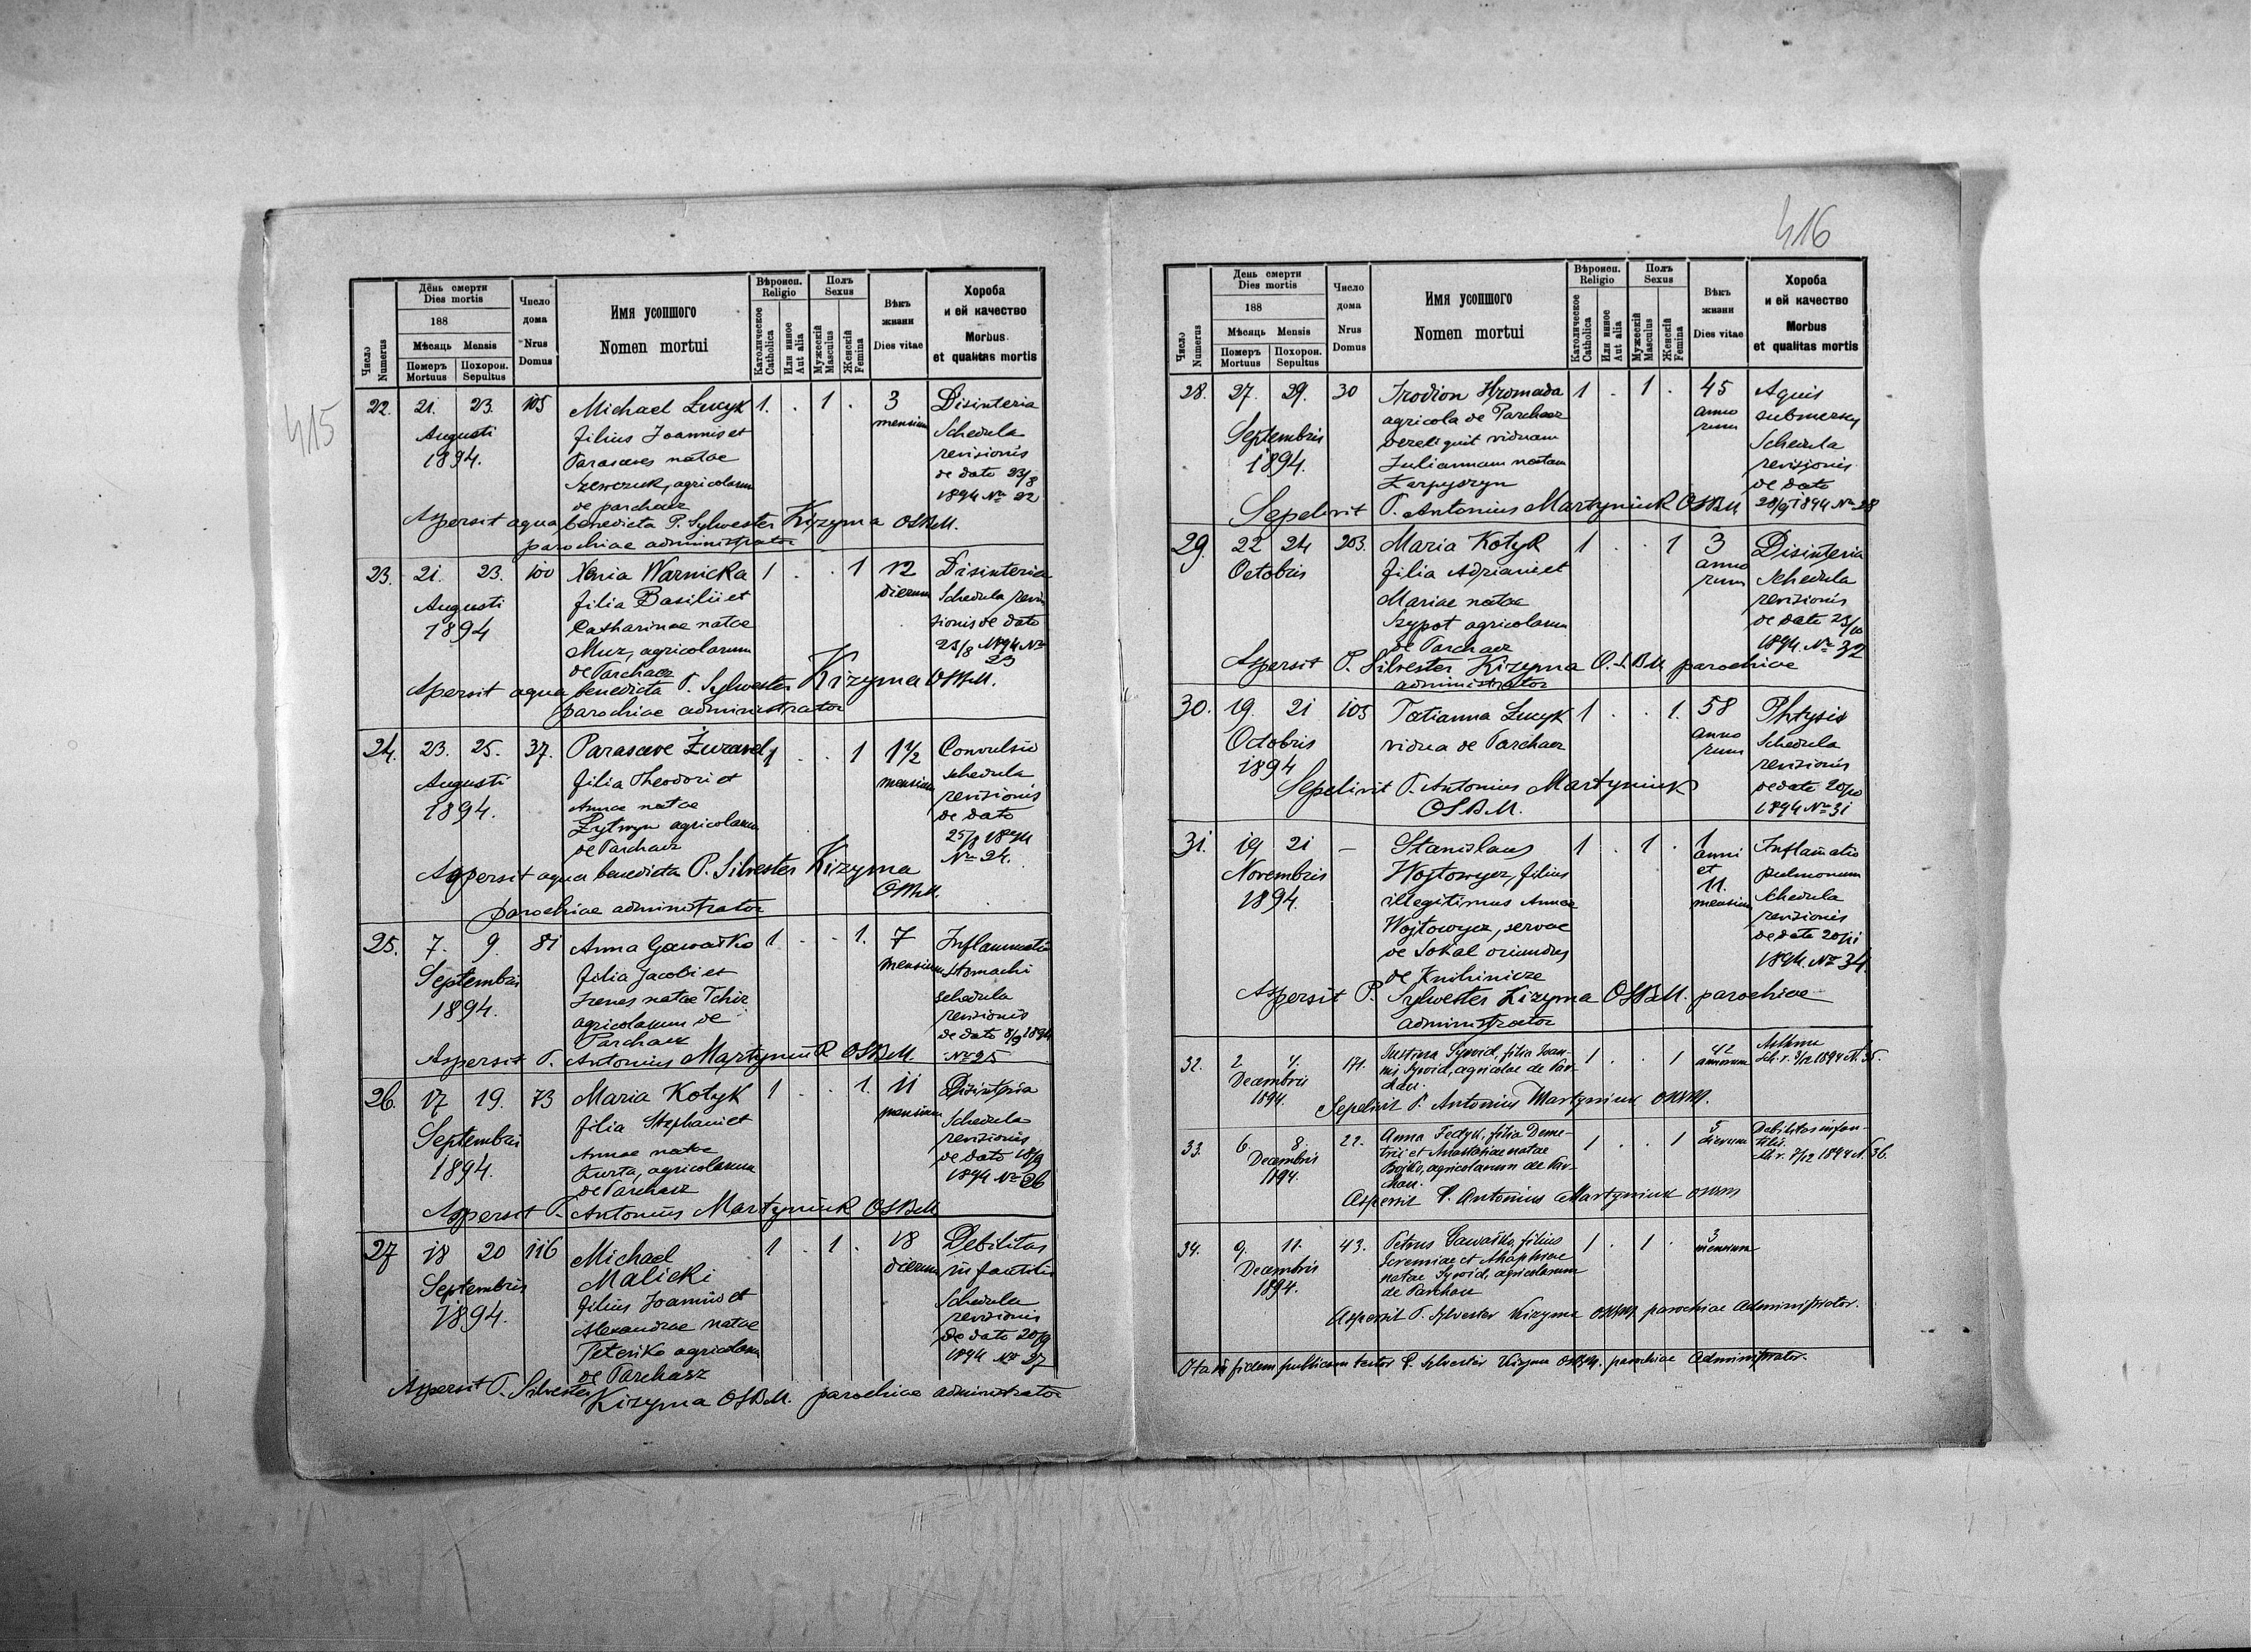 415
Число Numerus
День смерти Dies mortis
188
Мѣсяць Mensis
Померъ Mortuus
Похорон. Sepultus
Число дома Nrus Domus
Имя усопшого Nomen mortui
Вѣроисп. Religio
Католическое Catholica
Или инное Aut alia
Полъ Sexus
Мужескій Masculus
Женскій Femina
Вѣкъ жизни Dies vitae
Хороба и ей качество Morbus et qualitas mortis
22. 21. 23. 105 Michael Łucyk 1. . 1 . 3 Disinteria
Augusti filius Joannis et mensium Schedula
1894. Parasceves natae revisionis
Szewczuk, agricolarum de dato 23/8
de parchacz 1894 Nro 22
Aspersit aqua benedicta P. Sylwester Kizyma OSBM.
parochiae administrator
23. 21. 23. 100 Xenia Warnicka 1 . . 1 12 Disinteria
Augusti filia Basilii et dierum Schedula revi
1894 Catharinae natae sionis de dato
Muz, agricolarum 23/8 1894 Nro
de Parchacz 23
Apersit aqua benedicta P. Sylwester Kizyma OSBM.
parochiae administrator
24. 23. 25. 37. Parasceve Żurawel 1 . . 1 1 1/2 Convulsio
Augusti filia Theodori et mensium schedula
1894. Annae natae revisionis
Łytwyn agricolarum de dato
de Parchacz 25/8 1894
Nro 24.
Aspersit aqua benedicta P. Silvester Kizyma
OSBM.
parochiae administrator
25. 7. 9. 81 Anna Gawaśko 1 . . 1. 7 Inflammatio
Septembris filia Jacobi et mensium stomachi
1894. Irenes natae Tchir schedula
agricolarum de revisionis
Parchacz de dato 8/9 1894
Aspersit P. Antonius Martyniuk OSBM. Nro 25
26. 17 19. 73 Maria Kotyk 1 . . 1. 11 Disinteria
Septembris filia Stephani et mensium Schedula
1894. Annae natae revisionis
Kurta, agricolarum de dato 18/9
de Parchacz 1894 Nro 26
Aspersit P. Antonius Martyniuk OSBM
27 18 20 116 Michael 1 . 1 . 18 Debilitas
Septembris Malicki dierum infantilis
1894. filius Joannis et Schedula
Alexandrae natae revisionis
Peteriko agricolarum de dato 20/9
de Parchasz 1894 Nro 27
Aspersit P. Silvester
Kizyma OSBM. parochiae administrator
416
Число Numerus
День смерти Dies mortis
188
Мѣсяць Mensis
Померъ Mortuus
Похорон. Sepultus
Число дома Nrus Domus
Имя усопшого Nomen mortui
Вѣроисп. Religio
Католическое Catholica
Или инное Aut alia
Полъ Sexus
Мужескій Masculus
Женскій Femina
Вѣкъ жизни Dies vitae
Хороба и ей качество Morbus et qualitas mortis
28. 27. 29. 30 Irodion Hromada 1 . 1 . 45 Aquis
Septembris agricola de Parchacz anno submersus
1894. dereliquit viduam rum Schedula
Juliannam natam revisionis
Karpyszyn de dato
Sepelivit P. Antonius Martyniuk OSBM 28/9 1894 Nro 28
29. 22 24 203. Maria Kotyk 1 . . 1 3 Disinteria
Octobris filia Adriani et anno Schedula
Mariae natae rum revisionis
Szypot agricolarum de dato 23/10
de Parchacz 1894. Nro 32
Aspersit P. Silvester Kizyma O.S.B.M parochiae
administrator
30. 19. 21 105 Tatianna Łucyk 1 . . 1. 58 Phtysis
Octobris vidua de Parchacz anno Schedula
1894 rum revisionis
Sepelivit P. Antonius Martyniuk de dato 20/10
OSBM. 1894 Nro 31
31. 19 21 — Stanislaus 1 . 1 . 1 Inflamatio
Novembris Wojtowycz, filius anni pulmonum
1894. illegitimus Annae et 11. Schedula
Wojtowycz, servae mensium revisionis
de Sokal oriundus de dato 20/11
de Knihinicze 1894. Nro 34.
Aspersit P. Sylwester Kizyma OSBM. parochiae
administrator
32. 2 4. 171. Justina Sywid, filia Joan- 1 . . 1 42 Asthma
Decembris nis Sywid, agricolae de Par- annorum Sch. r. 3/12 1894 N. 35.
1894. chacz.
Sepelivit P. Antonius Martyniuk OSBM.
33. 6 8. 22. Anna Fedyk, filia Deme- 1 . . 1 5 Debilitas infan-
Decembris trii et Anastasiae natae dierum tilis.
1894. Bojko, agricolarum de Par- Sch. r. 7/12 1894 N. 36.
chacz.
Aspersit P. Antonius Martyniuk OSBM
34. 9. 11. 43. Petrus Gawaśko, filius 1 . 1 . 3
Decembris Jeremiae et Agaphiae mensium
1894. natae Sywid, agricolarum
de Parchacz
Aspersit P. Sylvester Kizyma OSBM parochiae Administrator.
Ita in fidem publicam testor P. Sylvester Kizyma OSBM. parochiae Administrator.